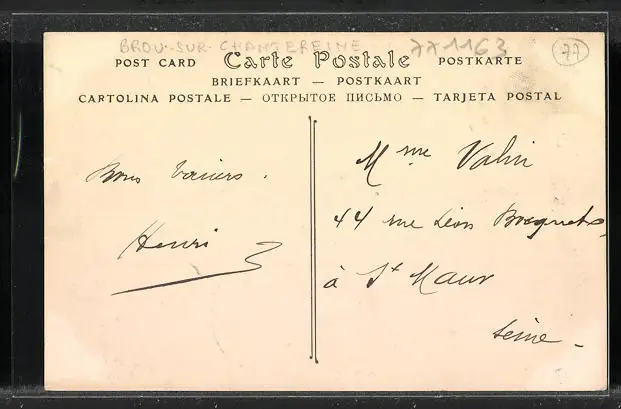 BROU-SUR-CHANTEREINE 771163 77
POST CARD Carte Postale POSTKARTE
BRIEFKAART — POSTKAART
CARTOLINA POSTALE — ОТКРЫТОЕ ПИСЬМО — TARJETA POSTAL
Bons baisers.
Henri
Mme Valin
44 rue Léon Bocquet
à St Maur
Seine -